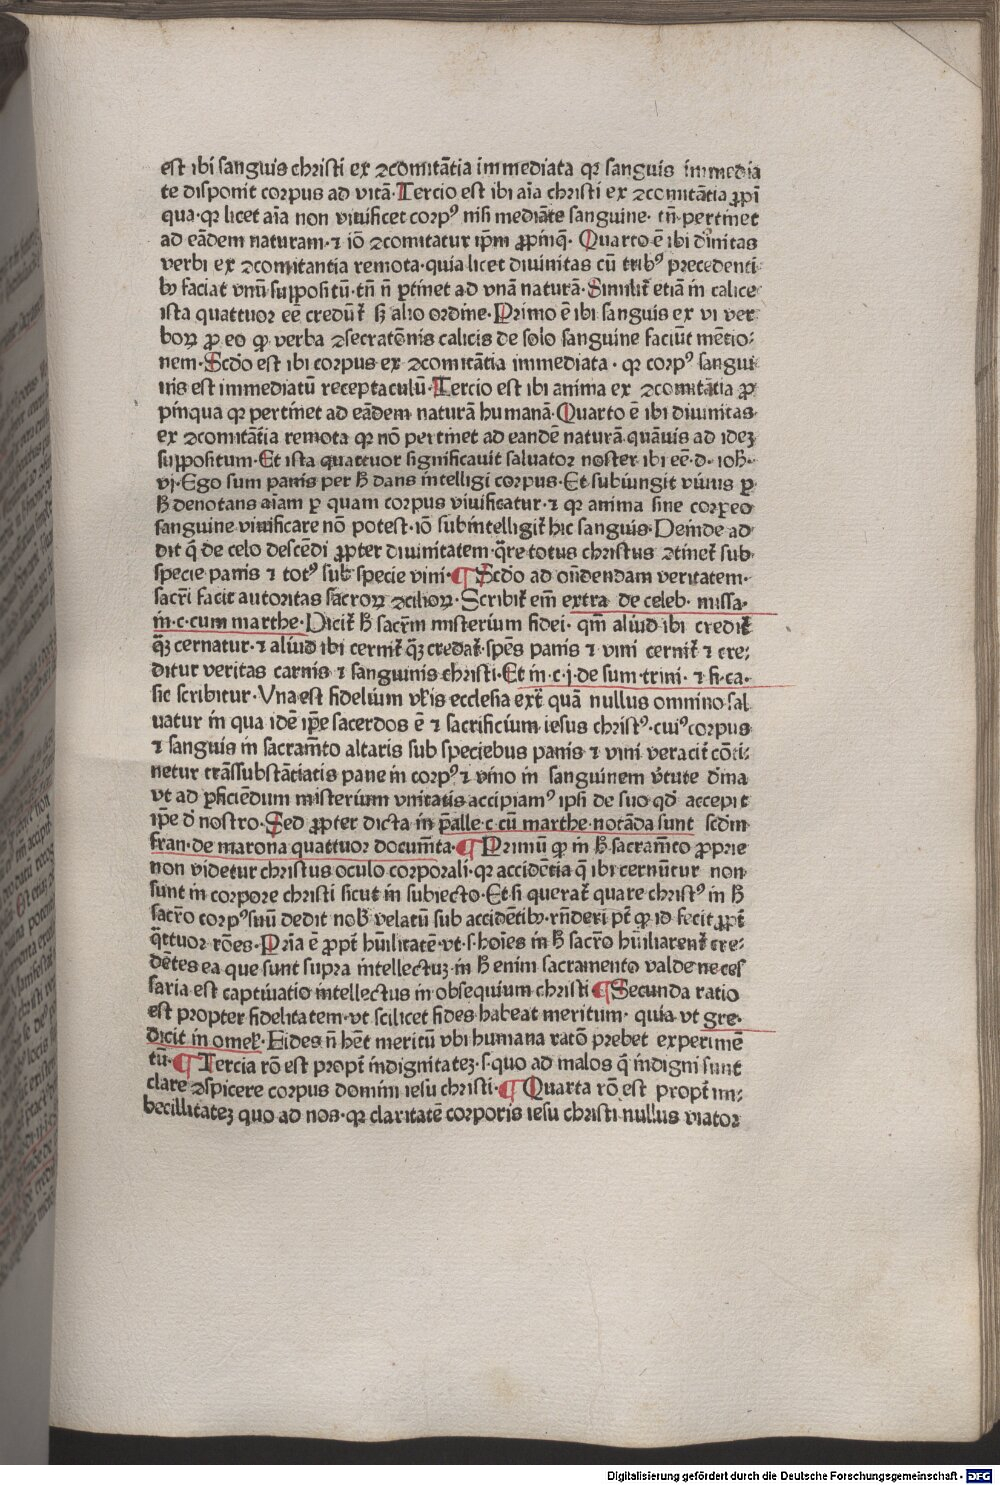 est ibi sanguis christi ex ꝯcomitãtia immediata qꝛ sanguis immedia
te disponit corpus ad vitã·Tercio est ibi aĩa christi ex ꝯcomitãtia ꝓpĩ
qua·qꝛ licet aĩa non viuificet corpꝰ nisi mediãte sanguine· tñ pertinet
ad eãdem naturam·⁊ iõ ꝯcomitatur ip̃m ꝓpinq̃· Quarto ẽ ibi diuinitas
verbi ex ꝯcomitantia remota·quia licet diuinitas cũ tribꝰ precedenti
bꝰ faciat vnũ suppositũ·tñ ñ ꝑtinet ad vnã naturã· Similiť etiã in calice
ista quattuor eẽ creduñť sꝫ alio ordine·Primo ẽ ibi sanguis ex vi ver
boꝝ ꝓ eo ꝙ verba ꝯsecratõnis calicis de solo sanguine faciũt mẽtio⸗
nem·Scďo est ibi corpus ex ꝯcomitãtia immediata · qꝛ corpꝰ sangui
nis est immediatũ receptaculũ·Tercio est ibi anima ex ꝯcomitãtia ꝓ
pinqua qꝛ pertinet ad eãdem naturã humanã·Quarto ẽ ibi diuinitas
ex ꝯcomitãtia remota qꝛ nõ pertinet ad eandẽ naturã quãuis ad idez
suppositum·Et ista quattuor significauit saluator noster ibi eẽ·d·ioh̃·
vj·Ego sum panis per h̃ dans intelligi corpus·Et subiungit viuus ꝑ
h̃ denotans aĩam ꝑ quam corpus viuificatur·⁊ qꝛ anima sine corpeo
sanguine viuificare nõ potest·iõ subintelligiť hic sanguis·Deinde ad
dit q̃ de celo descẽdi ꝓpter diuinitatem·q̃re totus christus ꝯtineť sub
specie panis ⁊ totꝰ sub specie vini·¶ Scďo ad oñdendam veritatem
sacr̃i facit autoritas sacroꝝ ꝯcilioꝝ·Scribiť em̃ extra de celeb· missa·
in·c·cum marthe·Diciť h̃ sacr̃m misterium fidei· qm̃ aliud ibi crediť
q̃ꝫ cernatur·⁊ aliud ibi cerniť q̃ꝫ credať·sp̃es panis ⁊ vini cerniť ⁊ cre⸗
ditur veritas carnis ⁊ sanguinis christi·Et in·c·j·de sum·trini· ⁊ fi·ca·
sic scribitur·Vna est fidelium vl̃is ecclesia extˀ quã nullus omnino sal
uatur in qua idẽ ip̃e sacerdos ẽ ⁊ sacrificium iesus christꝰ·cuiꝰ corpus
⁊ sanguis in sacram̃to altaris sub speciebus panis ⁊ vini veraciť cõti⸗
netur trãssubstãtiatis pane in corpꝰ ⁊ vino in sanguinem vˀtute diuina
vt ad ꝑficiẽdum misterium vnitatis accipiamꝰ ipsi de suo qď accepit
ip̃e ď nostro·Sed ꝓpter dicta in p̃alle·c·cũ marthe·notãda sunt scďm
fran·de marona quattuor docum̃ta·¶ Primũ ꝙ in h̃ sacram̃to ꝓprie
non videtur christus oculo corporali·qꝛ accidẽtia q̃ ibi cernũtur non
sunt in corpore christi sicut in subiecto·Et si querať quare christꝰ in h̃
sacr̃o corpꝰ suũ dedit nob̃ velatũ sub accidẽtibꝰ·rñderi pt̃ ꝙ id fecit ꝓpť
q̃ttuor rões·Pr̃ia ẽ ꝓpť hũilitatẽ·vt·s·hoĩes in h̃ sacr̃o hũiliarenť cre⸗
dẽtes ea que sunt supra intellectuꝫ·in h̃ enim sacramento valde neces
saria est captiuatio intellectus in obsequium christi ¶ Secunda ratio
est propter fidelitatem·vt scilicet fides habeat meritum· quia vt gre·
dicit in omel̃·Fides ñ hẽt meritũ vbi humana ratõ prebet experimẽ
tũ·¶ Tercia rõ est propť indignitateꝫ·s·quo ad malos q̃ indigni sunt
clare ꝯspicere corpus domini iesu christi·¶ Quarta rõ est propť im⸗
becillitateꝫ quo ad nos·qꝛ claritatẽ corporis iesu christi nullus viator
Digitalisierung gefördert durch die Deutsche Forschungsgemeinschaft - DFG